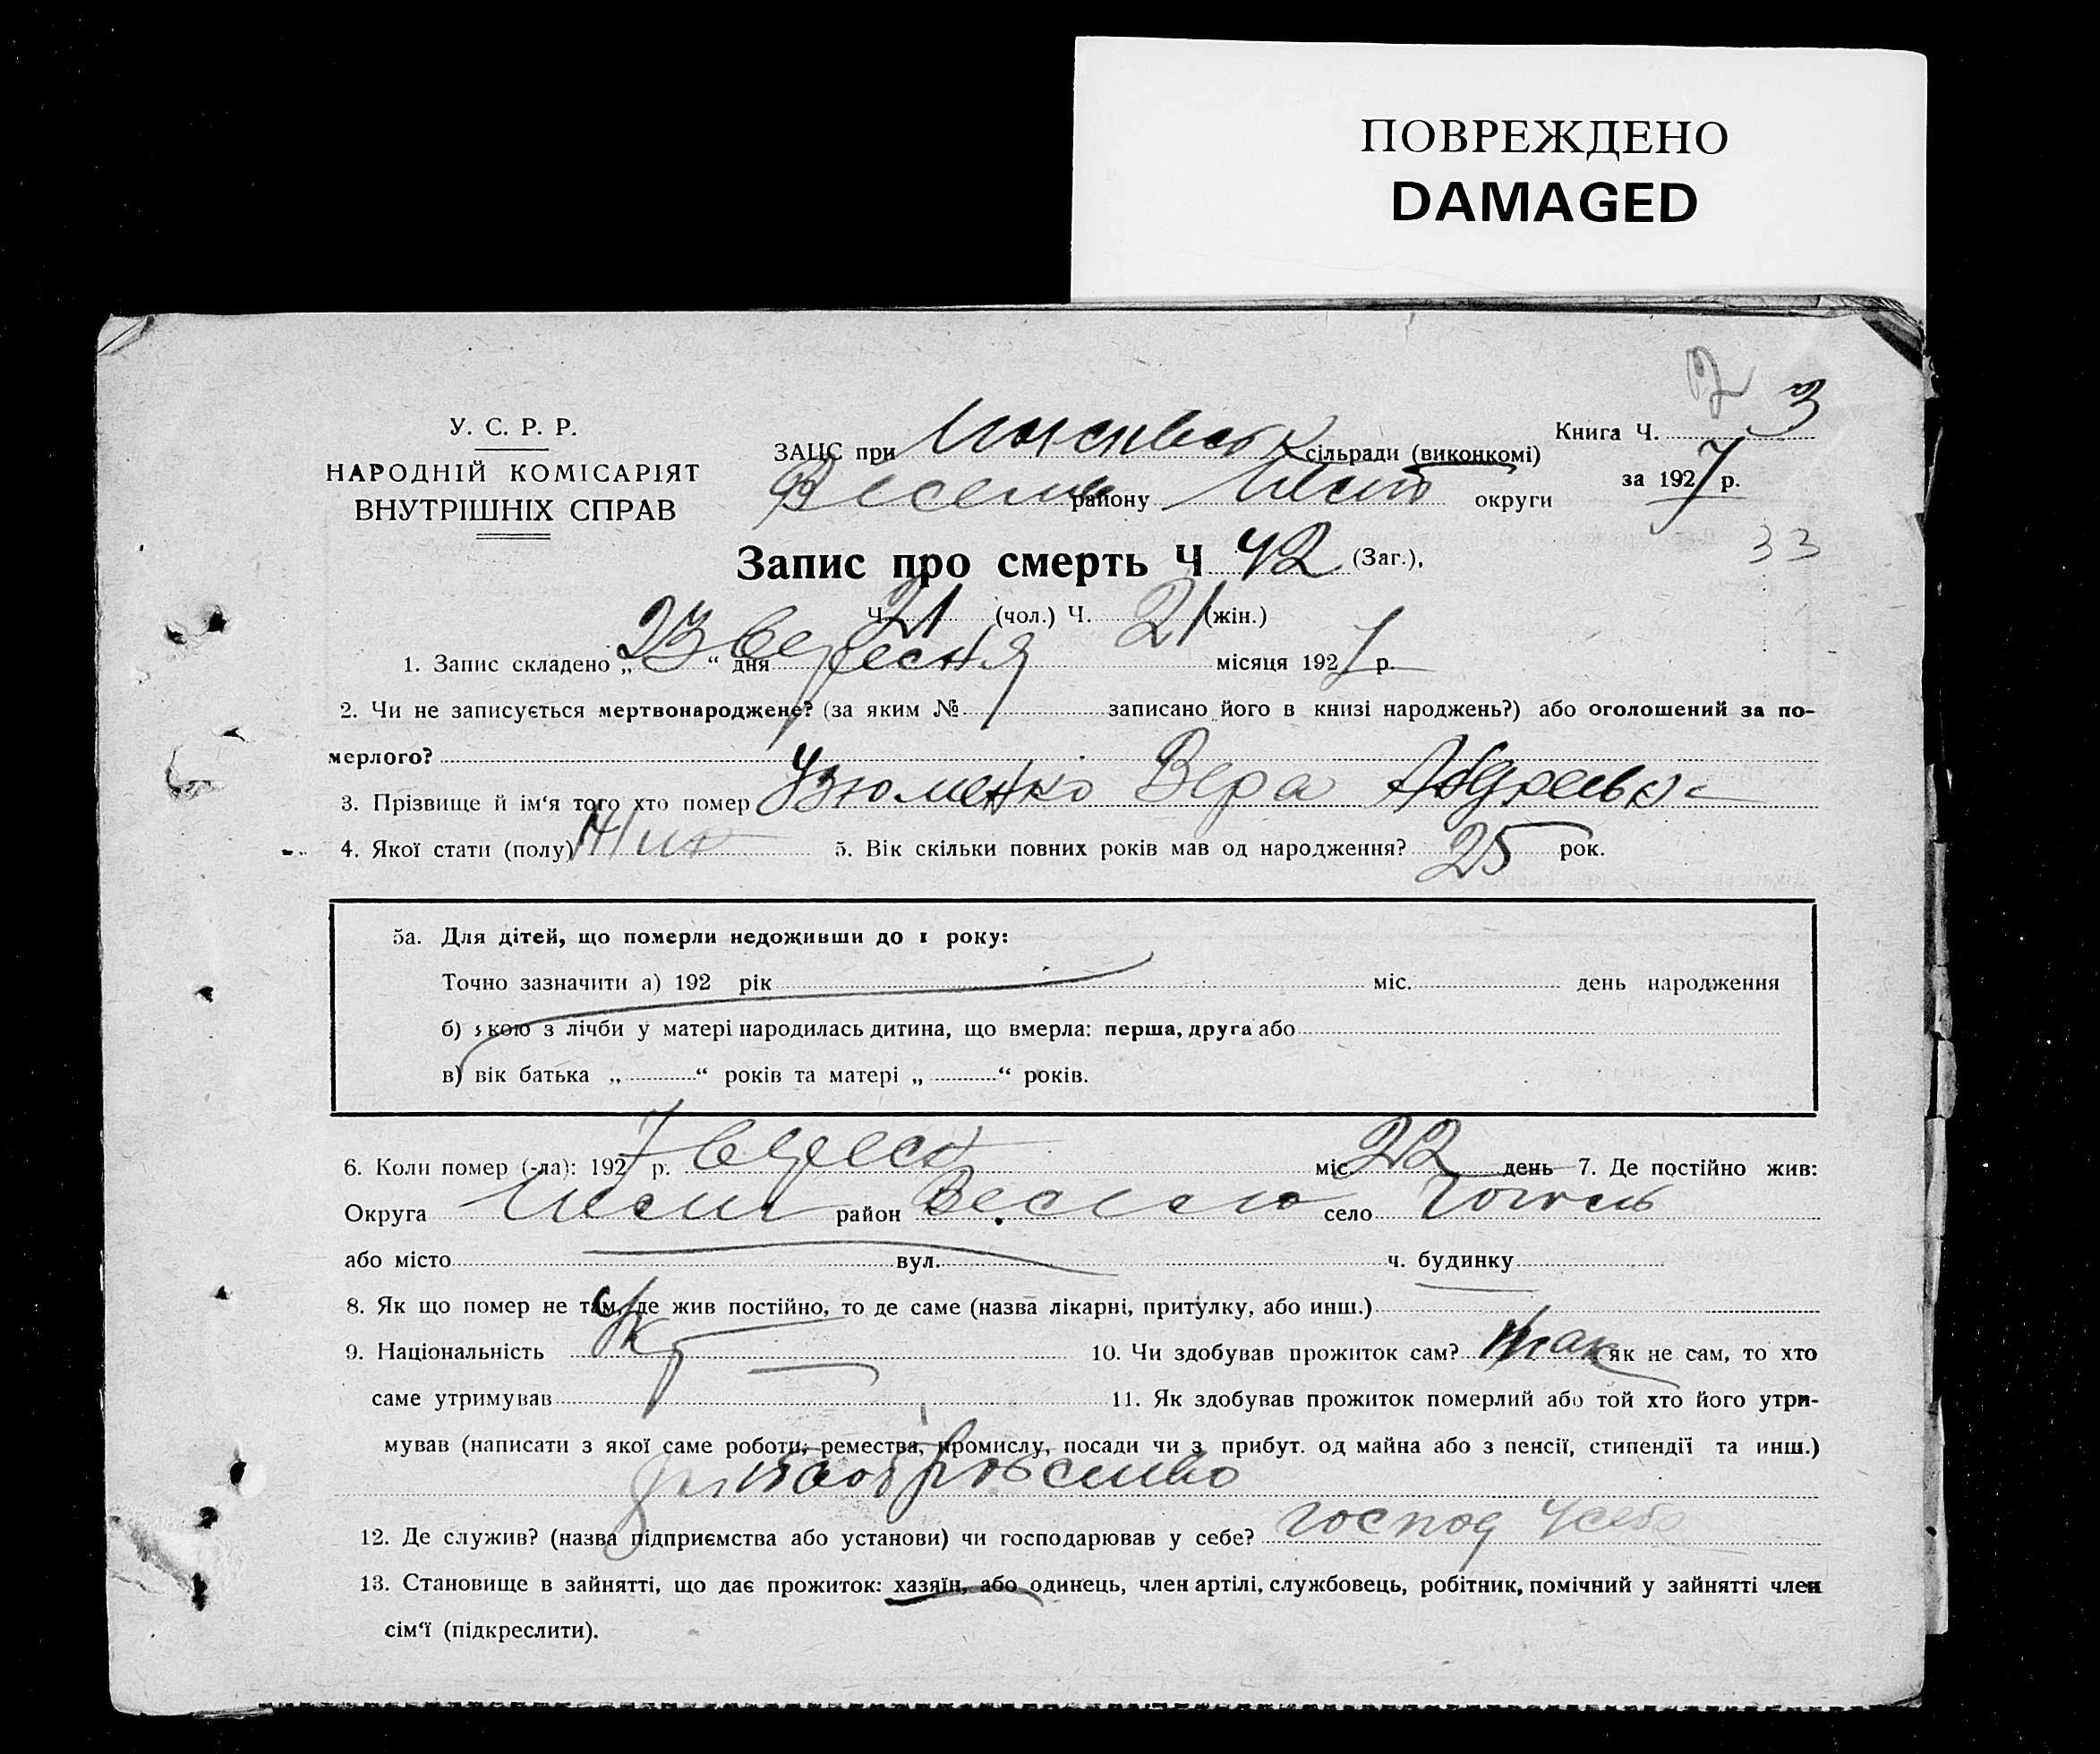 ПОВРЕЖДЕНО
DAMAGED
2 3
У. С. Р. Р.
НАРОДНІЙ КОМІСАРІЯТ
ВНУТРІШНІХ СПРАВ
ЗАЦС при сільради (виконкомі)
Книга Ч.
району округи
за 1927 р.
33
Запис про смерть Ч 42 (Заг.),
Ч. 21 (чол.) Ч. 21 (жін.)
1. Запис складено „23“ дня вересня місяця 1927 р.
2. Чи не записується мертвонароджене? (за яким № записано його в книзі народжень?) або оголошений за по-
мерлого?
3. Прізвище й ім‘я того хто помер Узюменко Вера
4. Якої стати (полу) 5. Вік скільки повних років мав од народження? 25 рок.
5а. Для дітей, що померли недоживши до 1 року:
Точно зазначити а) 192 рік міс. день народження
б) якою з лічби у матері народилась дитина, що вмерла: перша, друга або
в) вік батька „ “ років та матері „ “ років.
6. Коли помер (-ла): 1927 р. верес міс. 22 день 7. Де постійно жив:
Округа район село
або місто вул. ч. будинку
8. Як що помер не там, де жив постійно, то де саме (назва лікарні, притулку, або инш.)
9. Національність Укр 10. Чи здобував прожиток сам? так як не сам, то хто
саме утримував 11. Як здобував прожиток померлий або той хто його утри-
мував (написати з якої саме роботи, ремества, промислу, посади чи з прибут. од майна або з пенсії, стипендії та инш.)
12. Де служив? (назва підприємства або установи) чи господарював у себе? господ у себе
13. Становище в зайнятті, що дає прожиток: хазяїн, або одинець, член артілі, службовець, робітник, помічний у зайнятті член
сім‘ї (підкреслити).